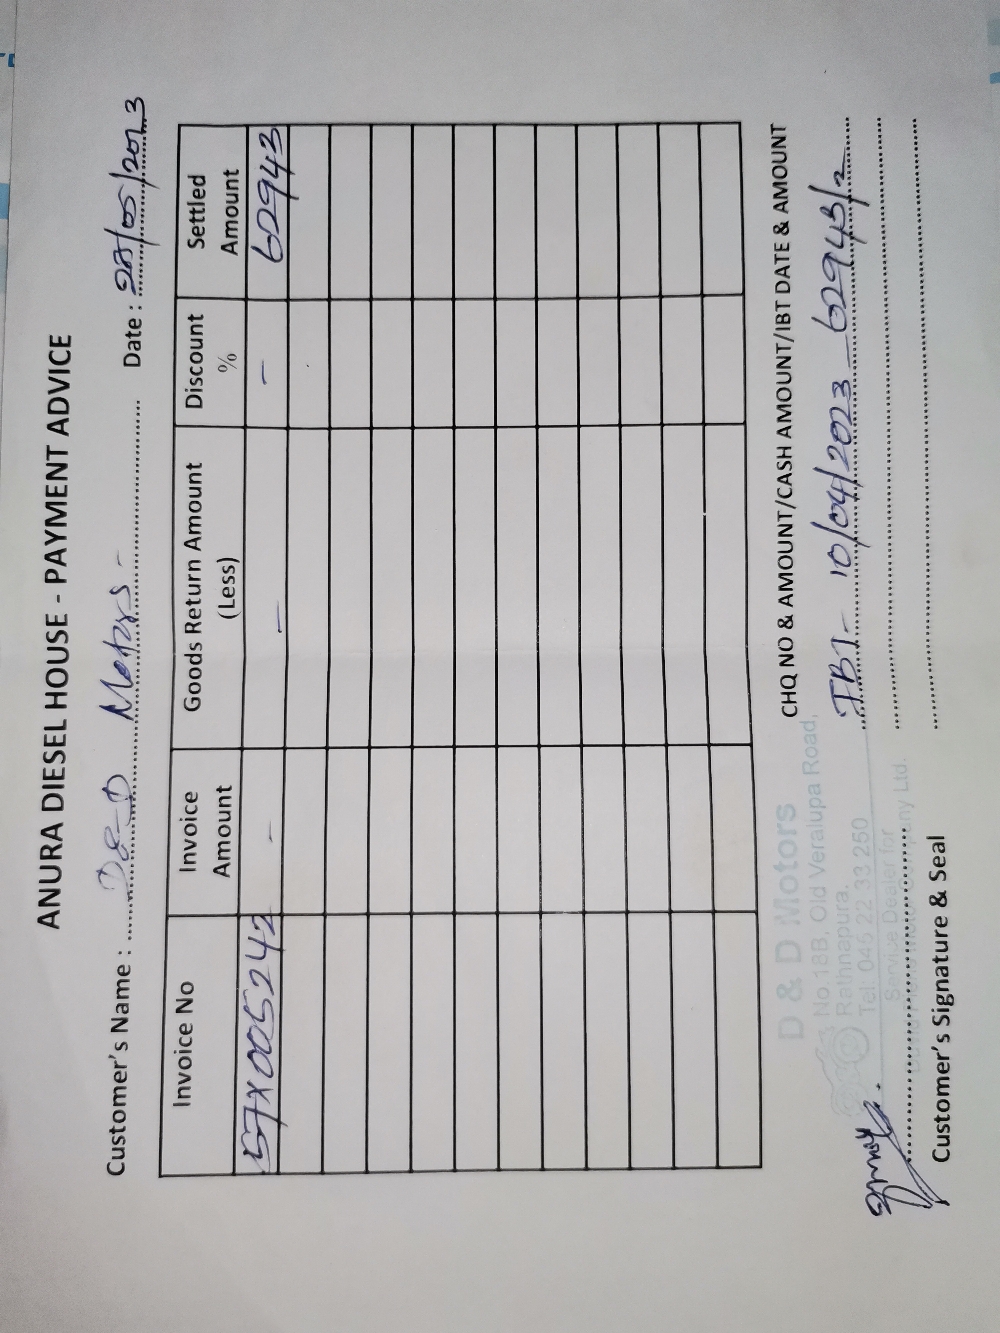 ANURA DIESEL HOUSE - PAYMENT ADVICE
Customer's Name : D & D Motors - Date : 28/05/2023
Invoice No Invoice Amount Goods Return Amount (Less) Discount % Settled Amount
57X005242 - - - 62943
CHQ NO & AMOUNT/CASH AMOUNT/IBT DATE & AMOUNT
D & D Motors
No.18B, Old Veralupa Road,
Rathnapura.
Tel: 045 22 33 250
Service Dealer for
IBT - 10/04/2023 - 62943/2
Customer's Signature & Seal